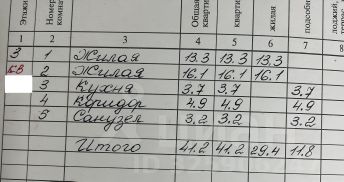 Этажи Номер комнаты Общая кварти кварти жилая подсобн лоджий,
1 2 3 4 5 6 7 8
3 1 Жилая 13.3 13.3 13.3
кв 2 Жилая 16.1 16.1 16.1
3 Кухня 3.7 3.7 3.7
4 Коридор 4.9 4.9 4.9
5 Санузел 3.2 3.2 3.2
Итого 41.2 41.2 29.4 11.8